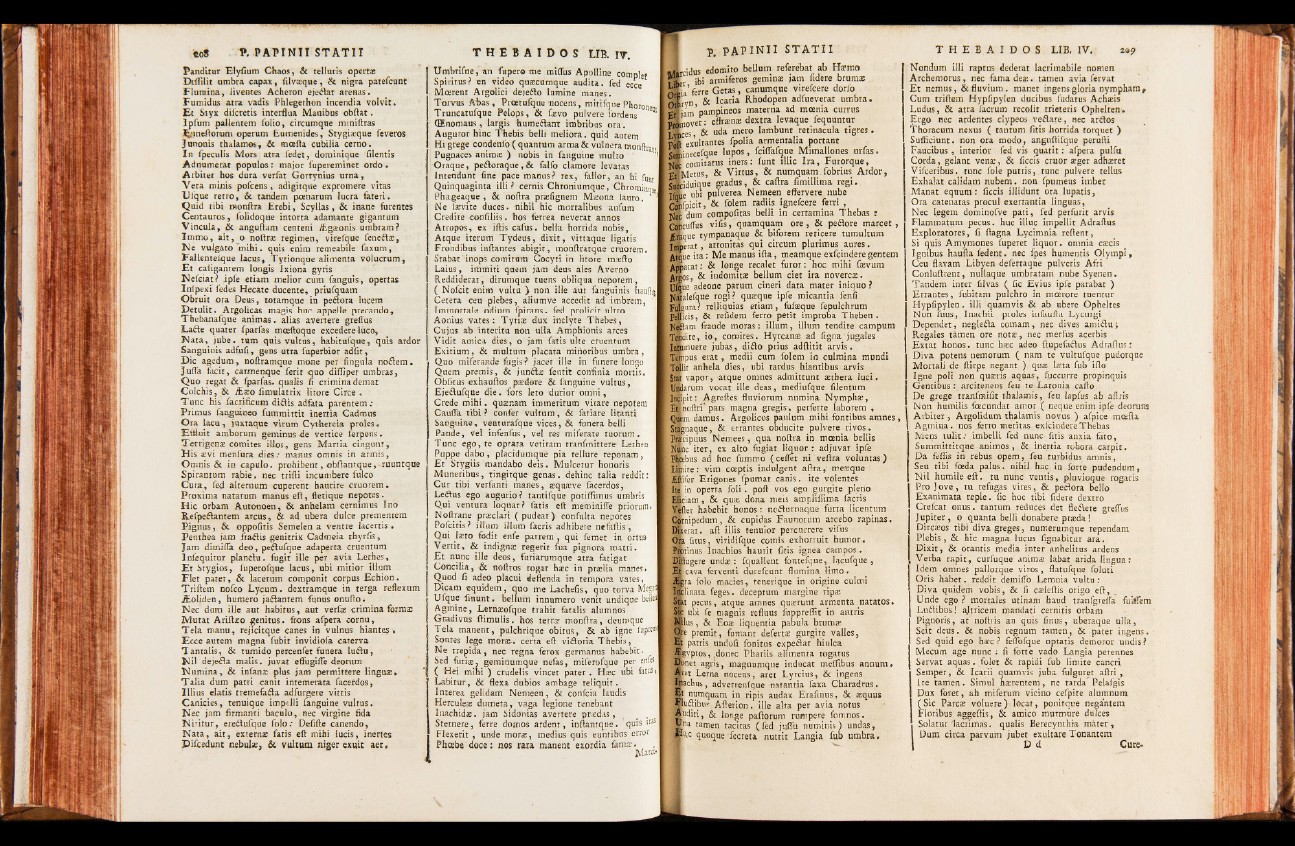 208 P. PAPINII STATII
Panditur Elysium Chaos, & telluris opertæ
Dissilit umbra capax, silvæque, & nigra patescunt
Flumina, liventes Acheron ejectat arenas.
Fumidus atra vadis Phlegethon incendia volvit.
Et Styx discretis interflua Manibus obstat.
Ipsum pallentem solio, circumque ministras
Funestorum operum Eumenides, Stygiæque severos
Junonis thalamos, & mœsta cubilia cerno.
In speculis Mors atra sedet, dominique silentis
Adnumerat populos: major supereminet ordo.
Arbiter hos dura versat Gortynius urna,
Vera minis poscens, adigitque expromere vitas
Usque retro, & tandem pœnarum lucra fateri.
Quid tibi monstra Erebi, Scyllas, & inane furentes
Centauros, solidoque intorta adamante gigantum
Vincula, & angustam centeni Ægæonis umbram?
Immo, ait, o nostræ regimen, viresque senectæ,
Ne vulgato mihi. quis enim remeabile saxum,
Fallentesque lacus, Tytionque alimenta volucrum,
Et caligantem longis Ixiona gyris
Nesciat? ipse etiam melior cum sanguis, opertas
Inspexi sedes Hecate ducente, priusquam
Obruit ora Deus, totamque in pectora lucem
Detulit. Argolicas magis huc appelle precando,
Thebanasque animas. alias avertere gressus
Lacte quater sparsas mœstoque excedere luco,
Nata, jube. tum quis vultus, habitusque, quis ardor
Sanguinis adfusi, gens utra superbior adsit,
Dic agedum, nostramque mone per singula noctem.
Jussa facit, carmenque serit quo dissiper umbras,
Quo regat & sparsas. qualis si crimina demat
Colchis, & Ææo simulatrix litore Circe.
Tunc his sacrificum dictis adfata parentem:
Primus sanguineo summittit inertia Cadmus
Ora lacu, juxtaque virum Cythereia proles.
Effluit amborum geminus de vertice serpens.
Terrigenæ comites illos, gens Martia cingunt,
His ævi mensura dies: manus omnis in armis,
Omnis & in capulo. prohibent, obstantque, ruuntque
Spirantum rabie, nec tristi incumbere sulco
Cura, sed alternum cuperent haurire cruorem.
Proxima natarum manus est, fletique nepotes.
Hic orbam Autonoen, & anhelam cernimus Ino
Respectantem arcus, & ad ubera dulce prementem
Pignus, & oppositis Semelen a ventre lacertis.
Penthea jam fractis genitrix Cadmeia thyrsis,
Jam dimissa deo, pectusque adaperta cruentum
Insequitur planctu. fugit ille per avia Lethes,
Et Stygios, superosque lacus, ubi mitior illum
Flet pater, & lacerum componit corpus Echion.
Tristem nosco Lycum. dextramque in terga reflexum
Æoliden, humero jactantem funus onusto.
Nec dum ille aut habitus, aut versæ crimina formæ
Mutat Aristæo genitus. frons aspera cornu,
Tela manu, rejicitque canes in vulnus hiantes.
Ecce autem magna subit invidiosa caterva
Tantalis, & tumido percenset funera luctu,
Nil dejecta malis. juvat effugisse deorum
Numina, & insanæ plus jam permittere linguæ.
Talia dum patri canit intemerata sacerdos,
Illius elatis tremefacta adsurgere vittis
Canicies, tenuique impelli sanguine vultus.
Nec jam firmanti baculo, nec virgine fida
Nititur, erectusque solo: Desiste canendo,
Nata, ait, externæ satis est mihi lucis, inertes
Discedunt nebulæ, & vultum niger exuit aer.
THEBAIDOS LIB. IV.
Umbrisne, an supero me missus Apolline complet
Spiritus? en video quæcumque audita. sed ecce
Mœrent Argolici dejecto lumine manes.
Torvus Abas, Prœtusque nocens, mitisque Phoroneus,
Truncatusque Pelops, & sævo pulvere sordens
Œnomaus, largis humectant imbribus ora.
Auguror hinc Thebis belli meliora. quid autem
Hi grege condenso (quantum arma & vulnera monstrant,
Pugnaces animæ) nobis in sanguine multo
Oraque, pectoraque, & falso clamore levatas
Intendunt sine pace manus? rex, fallor, an hi sunt
Quinquaginta illi? cernis Chroniumque, Chromiumque
Phageaque, & nostra præsignem Mæona lauro.
Ne sævite duces. nihil hic mortalibus ausum
Credite consiliis. hos ferrea neverat annos
Atropos, ex istis casus. bella horrida nobis,
Atque iterum Tydeus, dixit, vittaque ligatis
Frondibus instantes abigit, monstratque cruorem.
Stabat inops comitum Cocyti in litore mœsto
Laius, immiti quem jam deus ales Averno
Reddiderat, dirumque tuens obliqua nepotem,
(Noscit enim vultu) non ille aut sanguinis haustus
Cetera ceu plebes, aliumve accedit ad imbrem,
Immortale odium spirans. sed prolicit ultro
Aonius vates: Tyriæ dux inclyte Thebes,
Cujus ab interitu non ulla Amphionis arces
Vidit amica dies, o jam satis ulte cruentum
Exitium, & multum placata minoribus umbra,
Quo miserande fugis? jacet ille in funere longo
Quem premis, & junctæ sentit confinia mortis.
Obsitus exhaustos pædore & sanguine vultus,
Ejectusque die. sors leto durior omni,
Crede mihi. quænam immeritum vitare nepotem
Caussa tibi? confer vultum, & satiare litanti
Sanguine, venturasque vices, & funera belli
Pande, vel infensus, vel res miserate tuorum.
Tunc ego, te optata vetitam transmittere Lethen
Puppe dabo, placidumque pia tellure reponam,
Et Stygiis mandabo deis. Mulcetur honoris
Muneribus, tingitque genas. dehinc talia reddit:
Cur tibi versanti manes, æquæve sacerdos,
Lectus ego augurio? tantisque potissimus umbris
Qui ventura loquar? satis est meminisse priorum.
Poscitis? illum illum sacris adhibete nefastis,
Qui læto fodit ense patrem, qui semet in ortus
Vertit, & indignæ regerit sua pignora matri.
Et nunc ille deos, furiarumque atra fatigat
Concilia, & nostros rogat hæc in prælia manes.
Quod si adeo placui deflenda in tempora vates,
Dicam equidem, quo me Lachesis, quo torva Megæra
Usque sinunt. bellum innumero venit undique bellum
Agmine, Lernæosque trahit fatalis alumnos
Gradivus stimulis. hos terræ monstra, deumque
Tela manent, pulchrique obitus, & ab igne supremo
Sontes lege moræ. certa est victoria Thebis,
Ne trepida, nec regna ferox germanus habebit.
Sed furiæ, geminumque nefas, miserosque per enses
(Hei mihi) crudelis vincet pater. Hæc ubi fatus,
Labitur, & flexa dubios ambage reliquit.
Interea gelidam Nemeen, & conscia laudis
Herculeæ dumeta, vaga legione tenebant
Inachidæ. jam Sidonias avertere prædas,
Sternere, ferre domos ardent, instantque. quis iras
Flexerit, unde moræ, medius quis euntibus error
Phœbe doce: nos rara manent exordia famæ.
Marci-
P. PAPINII STATII
Marcidus edomito bellum referebat ab Hæmo
Liber, ibi armiferos geminæ jam sidere brumæ
Orgia ferre Getas, canumque virescere dorso
Othryn, & Icaria Rhodopen adsueverat umbra.
Et jam pampineos materna ad mœnia currus
Promovet: effrænæ dextra levaque sequuntur
Lynces, & uda mero lambunt retinacula tigres.
Post exultantes spolia armentalia portant
Seminecesque lupos, scissasque Mimallones ursas.
Nec comitatus iners: sunt illic Ira, Furorque,
Et Metus, & Virtus, & numquam sobrius Ardor,
Succiduique gradus, & castra simillima regi.
Isque ubi pulverea Nemeen effervere nube
Conspicit, & solem radiis ignescere ferri,
Nec dum compositas belli in certamina Thebas:
Concussus visis, quamquam ore, & pectore marcet,
Æraque tympanaque & biforem reticere tumultum
Imperat, attonitas qui circum plurimus aures.
Atque ita: Me manus ista, meamque exscindere gentem
Apparat: & longe recolet furor: hoc mihi sævum
Argos, & indomitæ bellum ciet ira novercæ.
Usque adeone parum cineri data mater iniquo?
Natalesque rogi? quæque ipse micantia sensi
Fulgura? relliquias etiam, fusæque sepulchrum
Pellicis, & residem ferro petit improba Theben.
Nectam fraude moras: illum, illum tendite campum
Tendite, io, comites. Hyrcanæ ad signa jugales
Intumuere jubas, dicto prius adstitit arvis.
Tempus erat, medii cum solem in culmina mundi
Tollit anhela dies, ubi tardus hiantibus arvis
Stat vapor, atque omnes admittunt æthera luci.
Undarum vocat ille deas, mediusque silentum
Incipit: Agrestes fluviorum numina Nymphæ,
Et nostri pars magna gregis, perferte laborem,
Quem damus. Argolicos paulum mihi fontibus amnes,
Stagnaque, & errantes obducite pulvere rivos.
Præcipuus Nemees, qua nostra in mœnia bellis
Nunc iter, ex alto fugiat liquor: adjuvat ipse
Phœbus ad hoc summo (cesset ni vestra voluntas)
Limite: vim cœptis indulgent astra, meæque
Æstifer Erigones spumat canis. ite volentes
Ite in operta soli. post vos ego gurgite pleno
Eliciam, & quæ dona meis amplissima sacris
Vester habebit honos: nocturnaque furta licentum
Cornipedum, & cupidas Faunorum arcebo rapinas.
Dixerat. ast illis tenuior percurrere visus
Ora situs, viridisque comis exhorruit humor.
Protinus Inachios haurit sitis ignea campos.
Diffugere undæ: squallent fontesque, lacusque,
Et cava ferventi durescunt flumina limo.
Ægra solo macies, tenerique in origine culmi
Inclinata seges. deceptum margine ripæ
Stat pecus, atque amnes quærunt armenta natatos.
Sic ubi se magnis refluus suppressit in antris
Nilus, & Eoæ liquentia pabula brumæ
Ore premit, fumant desertæ gurgite valles,
Et patris undosi sonitus expectat hiulca
Ægyptos, donec Phariis alimenta rogatus
Donet agris, magnumque inducat messibus annum.
Aret Lerna nocens, aret Lyrcius, & ingens
Inachus, advertensque natantia saxa Charadrus.
Et numquam in ripis audax Erasinus, & æquus
Fluctibus Asterion. ille alta per avia notus
Audiri, & longe pastorum rumpere somnos.
Una tamen tacitas (sed jussu numinis) undas,
Hac quoque secreta nutrit Langia sub umbra.
THEBAIDOS LIB. IV. 209
Nondum illi raptus dederat lacrimabile nomen
Archemorus, nec fama deæ. tamen avia servat
Et nemus, & fluvium. manet ingens gloria nympham,
Cum tristem Hypsipylen ducibus sudatus Achæis
Ludus, & atra sacrum recolit trieteris Ophelten.
Ergo nec ardentes clypeos vectare, nec arctos
Thoracum nexus (tantum sitis horrida torquet)
Sufficiunt. non ora modo, angustisque perusti
Faucibus, interior sed vis quatit: aspera pulsu
Corda, gelant venæ, & siccis cruor æger adhæret
Visceribus. tunc sole putris, tunc pulvere tellus
Exhalat calidam nubem. non spumeus imber
Manat equum: siccis illidunt ora lupatis,
Ora catenatas procul exertantia linguas,
Nec legem dominosve pati, sed perfurit arvis
Flammatum pecus. huc illuc impellit Adrastus
Exploratores, si stagna Lycimnia restent,
Si quis Amymones superet liquor. omnia cæcis
Ignibus hausta sedent. nec spes humentis Olympi,
Ceu flavam Libyen desertaque pulveris Afri
Conlustrent, nullaque umbratam nube Syenen.
Tandem inter silvas (sic Evius ipse parabat)
Errantes, subitam pulchro in mœrore tuentur
Hypsipylen. illi quamvis & ab ubere Opheltes
Non suus, Inachii proles infausta Lycurgi
Dependet, neglecta comam, nec dives amictu;
Regales tamen ore notæ, nec mersus acerbis
Extat honos. tunc hæc adeo stupefactus Adrastus:
Diva potens nemorum (nam te vultusque pudorque
Mortali de stirpe negant) quæ læta sub isto
Igne poli non quæris aquas, succurre propinquis
Gentibus: arcitenens seu te Latonia casto
De grege transmisit thalamis, seu lapsus ab astris
Non humilis fœcundat amor (neque enim ipse deorum
Arbiter, Argolidum thalamis novus) aspice mœsta
Agmina. nos ferro meritas exscindere Thebas
Mens tulit: imbelli sed nunc sitis anxia fato,
Summittitque animos, & inertia robora carpit.
Da fessis in rebus opem, seu turbidus amnis,
Seu tibi fœda palus. nihil hac in sorte pudendum,
Nil humile est. tu nunc ventis, pluvioque rogaris
Pro Jove, tu refugas vires, & pectora bello
Exanimata reple. sic hoc tibi sidere dextro
Crescat onus. tantum reduces det flectere gressus
Jupiter, o quanta belli donabere præda!
Dircæos tibi diva greges, numerumque rependam
Plebis, & hic magna lucus signabitur ara.
Dixit, & orantis media inter anhelitus ardens
Verba rapit, cursuque animæ labat arida lingua:
Idem omnes pallorque viros, flatusque soluti
Oris habet. reddit demisso Lemnia vultu:
Diva quidem vobis, & si cælestis origo est,
Unde ego? mortales utinam haud transgressa fuissem
Luctibus! altricem mandati cernitis orbam
Pignoris, at nostris an quis sinus, uberaque ulla,
Scit deus. & nobis regnum tamen, & pater ingens.
Sed quid ego hæc? fessosque optatis demoror undis?
Mecum age nunc: si forte vado Langia perennes
Servat aquas. solet & rapidi sub limite cancri
Semper, & Icarii quamvis juba fulguret astri,
Ire tamen. Simul hærentem, ne tarda Pelasgis
Dux foret, ah miserum vicino cespite alumnum
(Sic Parcæ voluere) locat, ponitque negantem
Floribus aggestis, & amico murmure dulces
Solatur lacrimas. qualis Berecynthia mater,
Dum circa parvum jubet exultare Tonantem
D d Cure-